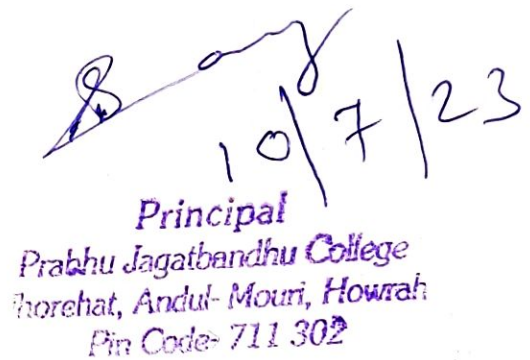 10/7/23
Principal
Prabhu Jagatbandhu College
horehat, Andul-Mouri, Howrah
Pin Code- 711 302